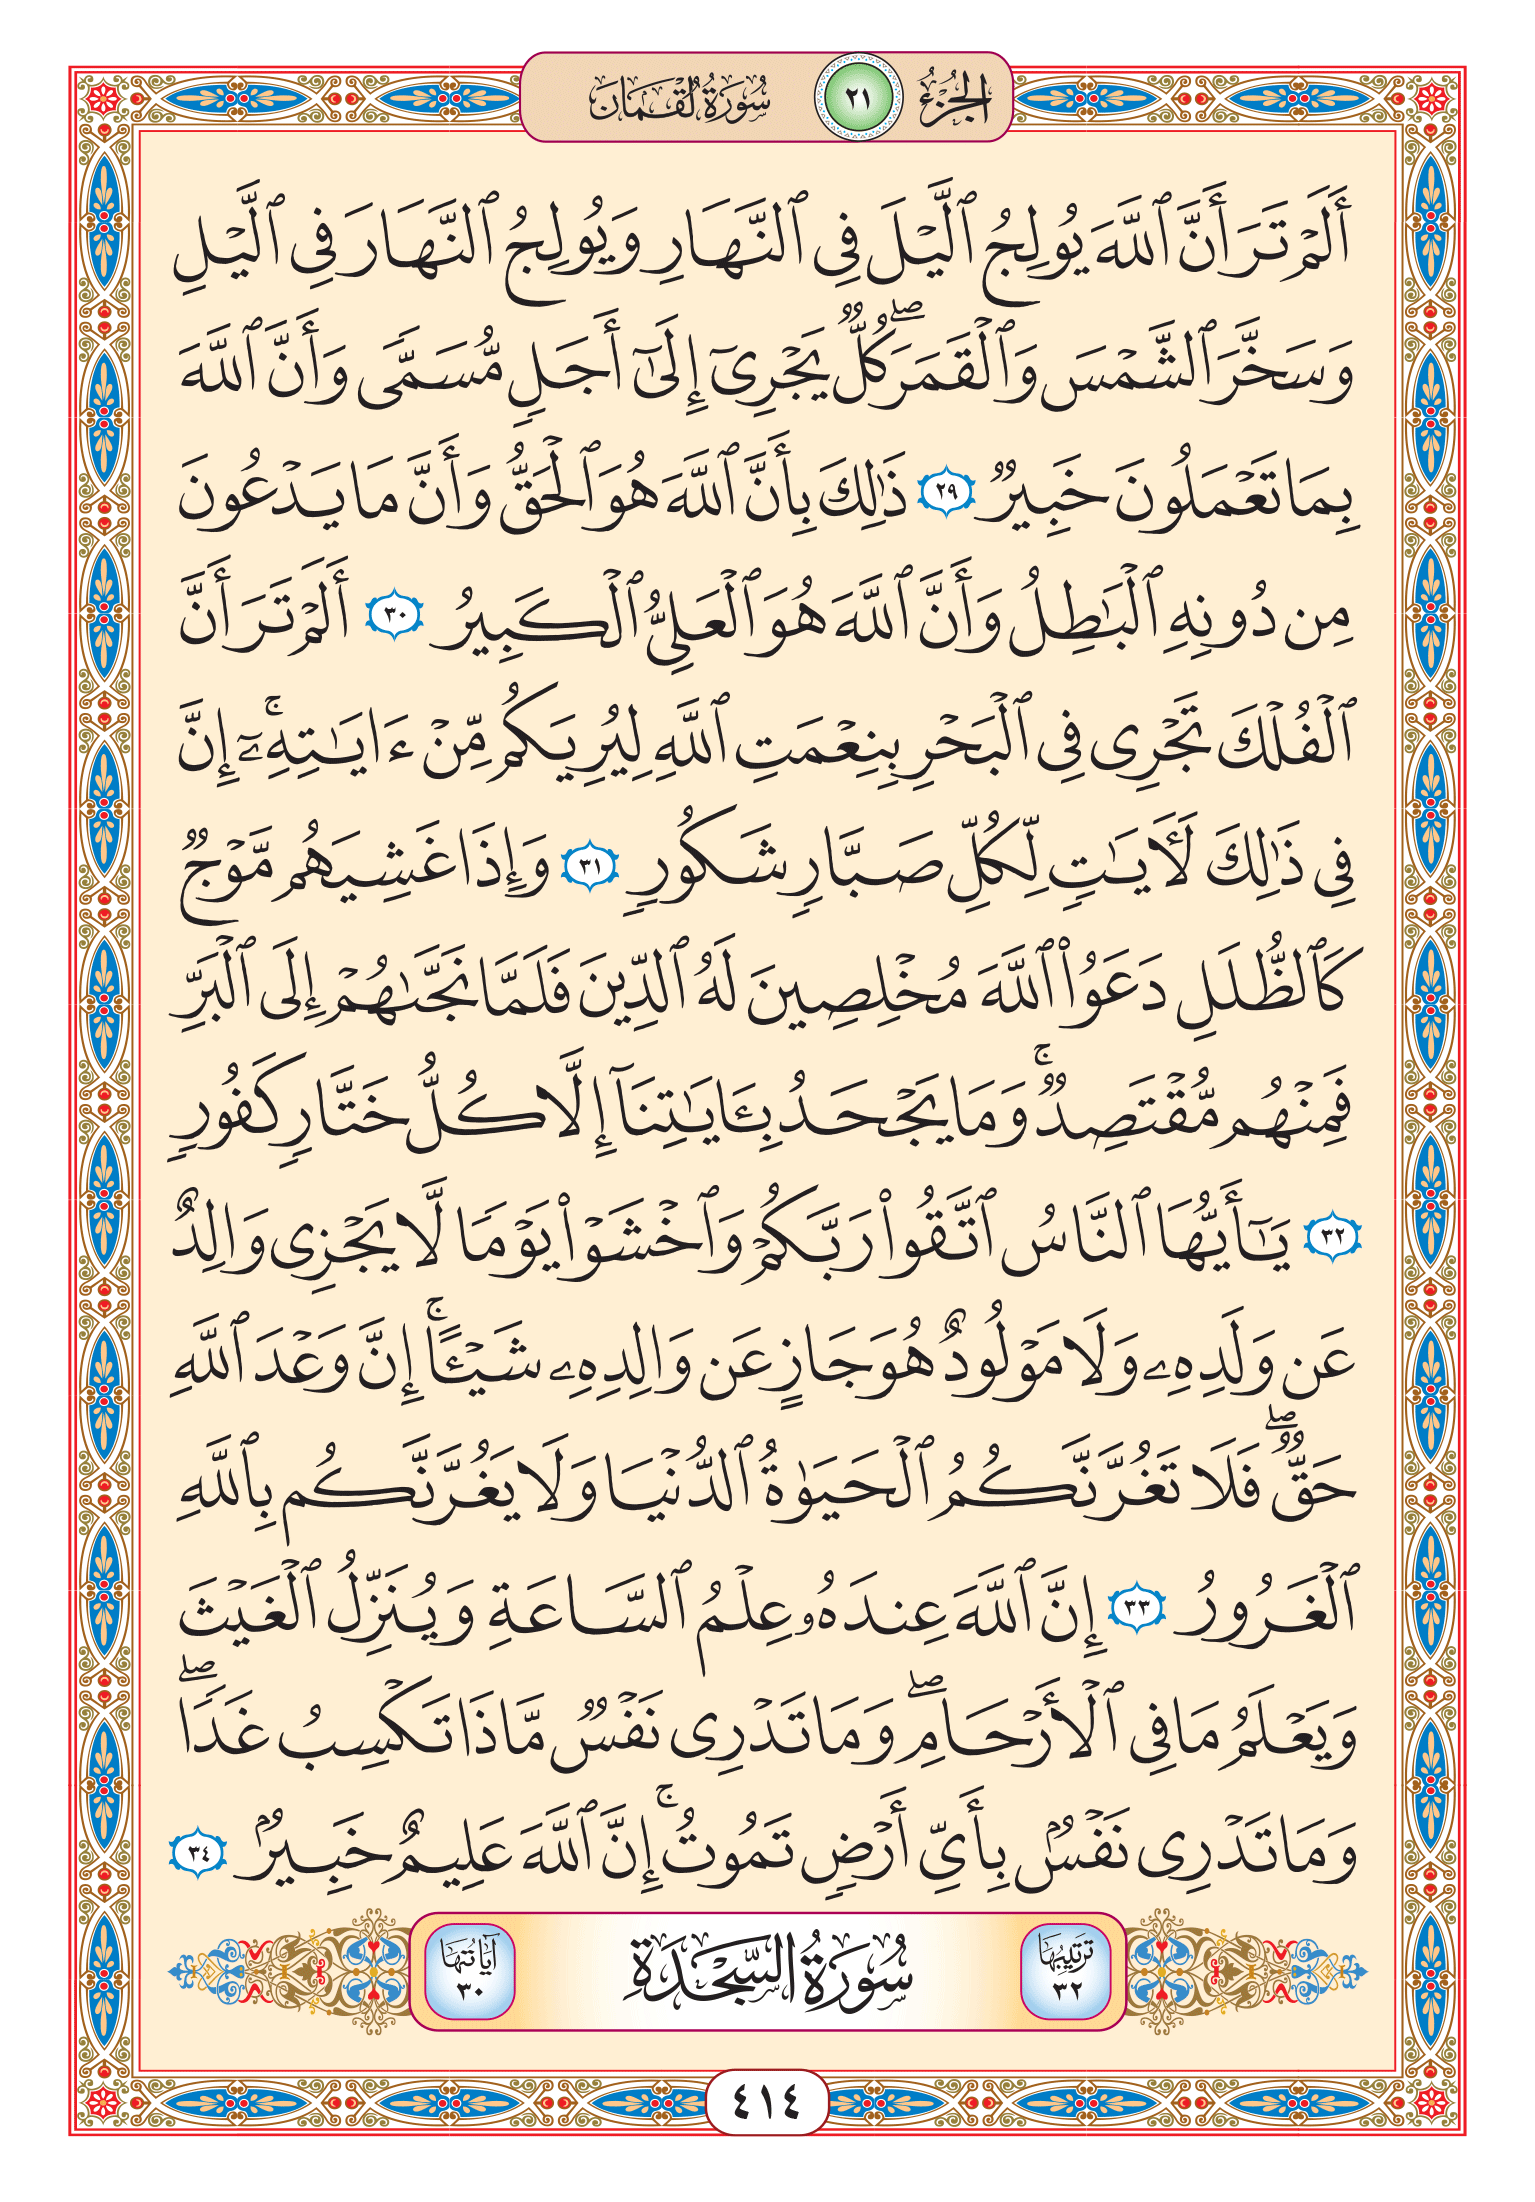 الجزء ٢١ سورة لقمان
أَلَمۡ تَرَ أَنَّ ٱللَّهَ يُولِجُ ٱلَّيۡلَ فِي ٱلنَّهَارِ وَيُولِجُ ٱلنَّهَارَ فِي ٱلَّيۡلِ
وَسَخَّرَ ٱلشَّمۡسَ وَٱلۡقَمَرَۖ كُلّٞ يَجۡرِيٓ إِلَىٰٓ أَجَلٖ مُّسَمّٗى وَأَنَّ ٱللَّهَ
بِمَا تَعۡمَلُونَ خَبِيرٞ ٢٩ ذَٰلِكَ بِأَنَّ ٱللَّهَ هُوَ ٱلۡحَقُّ وَأَنَّ مَا يَدۡعُونَ
مِن دُونِهِ ٱلۡبَٰطِلُ وَأَنَّ ٱللَّهَ هُوَ ٱلۡعَلِيُّ ٱلۡكَبِيرُ ٣٠ أَلَمۡ تَرَ أَنَّ
ٱلۡفُلۡكَ تَجۡرِي فِي ٱلۡبَحۡرِ بِنِعۡمَتِ ٱللَّهِ لِيُرِيَكُم مِّنۡ ءَايَٰتِهِۦٓۚ إِنَّ
فِي ذَٰلِكَ لَأٓيَٰتٖ لِّكُلِّ صَبَّارٖ شَكُورٖ ٣١ وَإِذَا غَشِيَهُم مَّوۡجٞ
كَٱلظُّلَلِ دَعَوُاْ ٱللَّهَ مُخۡلِصِينَ لَهُ ٱلدِّينَ فَلَمَّا نَجَّىٰهُمۡ إِلَى ٱلۡبَرِّ
فَمِنۡهُم مُّقۡتَصِدٞۚ وَمَا يَجۡحَدُ بِـَٔايَٰتِنَآ إِلَّا كُلُّ خَتَّارٖ كَفُورٖ
٣٢ يَٰٓأَيُّهَا ٱلنَّاسُ ٱتَّقُواْ رَبَّكُمۡ وَٱخۡشَوۡاْ يَوۡمٗا لَّا يَجۡزِي وَالِدٌ
عَن وَلَدِهِۦ وَلَا مَوۡلُودٌ هُوَ جَازٍ عَن وَالِدِهِۦ شَيۡـًٔاۚ إِنَّ وَعۡدَ ٱللَّهِ
حَقّٞۖ فَلَا تَغُرَّنَّكُمُ ٱلۡحَيَوٰةُ ٱلدُّنۡيَا وَلَا يَغُرَّنَّكُم بِٱللَّهِ
ٱلۡغَرُورُ ٣٣ إِنَّ ٱللَّهَ عِندَهُۥ عِلۡمُ ٱلسَّاعَةِ وَيُنَزِّلُ ٱلۡغَيۡثَ
وَيَعۡلَمُ مَا فِي ٱلۡأَرۡحَامِۖ وَمَا تَدۡرِي نَفۡسٞ مَّاذَا تَكۡسِبُ غَدٗاۖ
وَمَا تَدۡرِي نَفۡسُۢ بِأَيِّ أَرۡضٖ تَمُوتُۚ إِنَّ ٱللَّهَ عَلِيمٌ خَبِيرُۢ ٣٤
ترتيبها ٣٢ سُورَةُ السَّجْدَةِ آياتها ٣٠
٤١٤